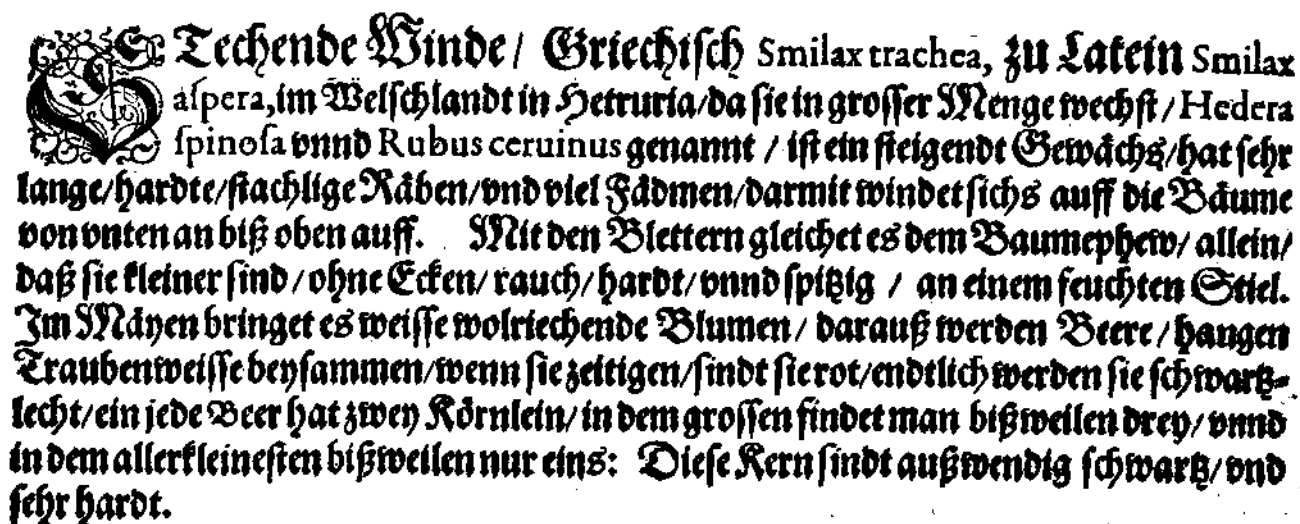 STechende Winde/ Griechisch Smilax trachea, zu Latein Smilax
aſpera, im Welſchlandt in Hetruria/da ſie in groſſer Menge wechſt/Hedera
ſpinoſa vnnd Rubus ceruinus genannt / iſt ein ſteigendt Gewächs/hat ſehr
lange/hardte/ſtachlige Räben/vnd viel Fädmen/darmit windet ſichs auff die Bäume
von vnten an biß oben auff. Mit den Blettern gleichet es dem Baumephew/ allein/
daß ſie kleiner ſind/ohne Ecken/rauch/hardt/vnnd ſpitzig / an einem feuchten Stiel.
Im Mäyen bringet es weiſſe wolriechende Blumen/ darauß werden Beere/hangen
Traubenweiſſe beyſammen/wenn ſie zeittigen/ſindt ſie rot/endtlich werden ſie ſchwartz-
lecht/ein jede Beer hat zwey Körnlein/in dem groſſen findet man bißweilen drey/vnnd
in dem allerkleineſten bißweilen nur eins: Dieſe Kern ſindt außwendig ſchwartz/vnd
ſehr hardt.